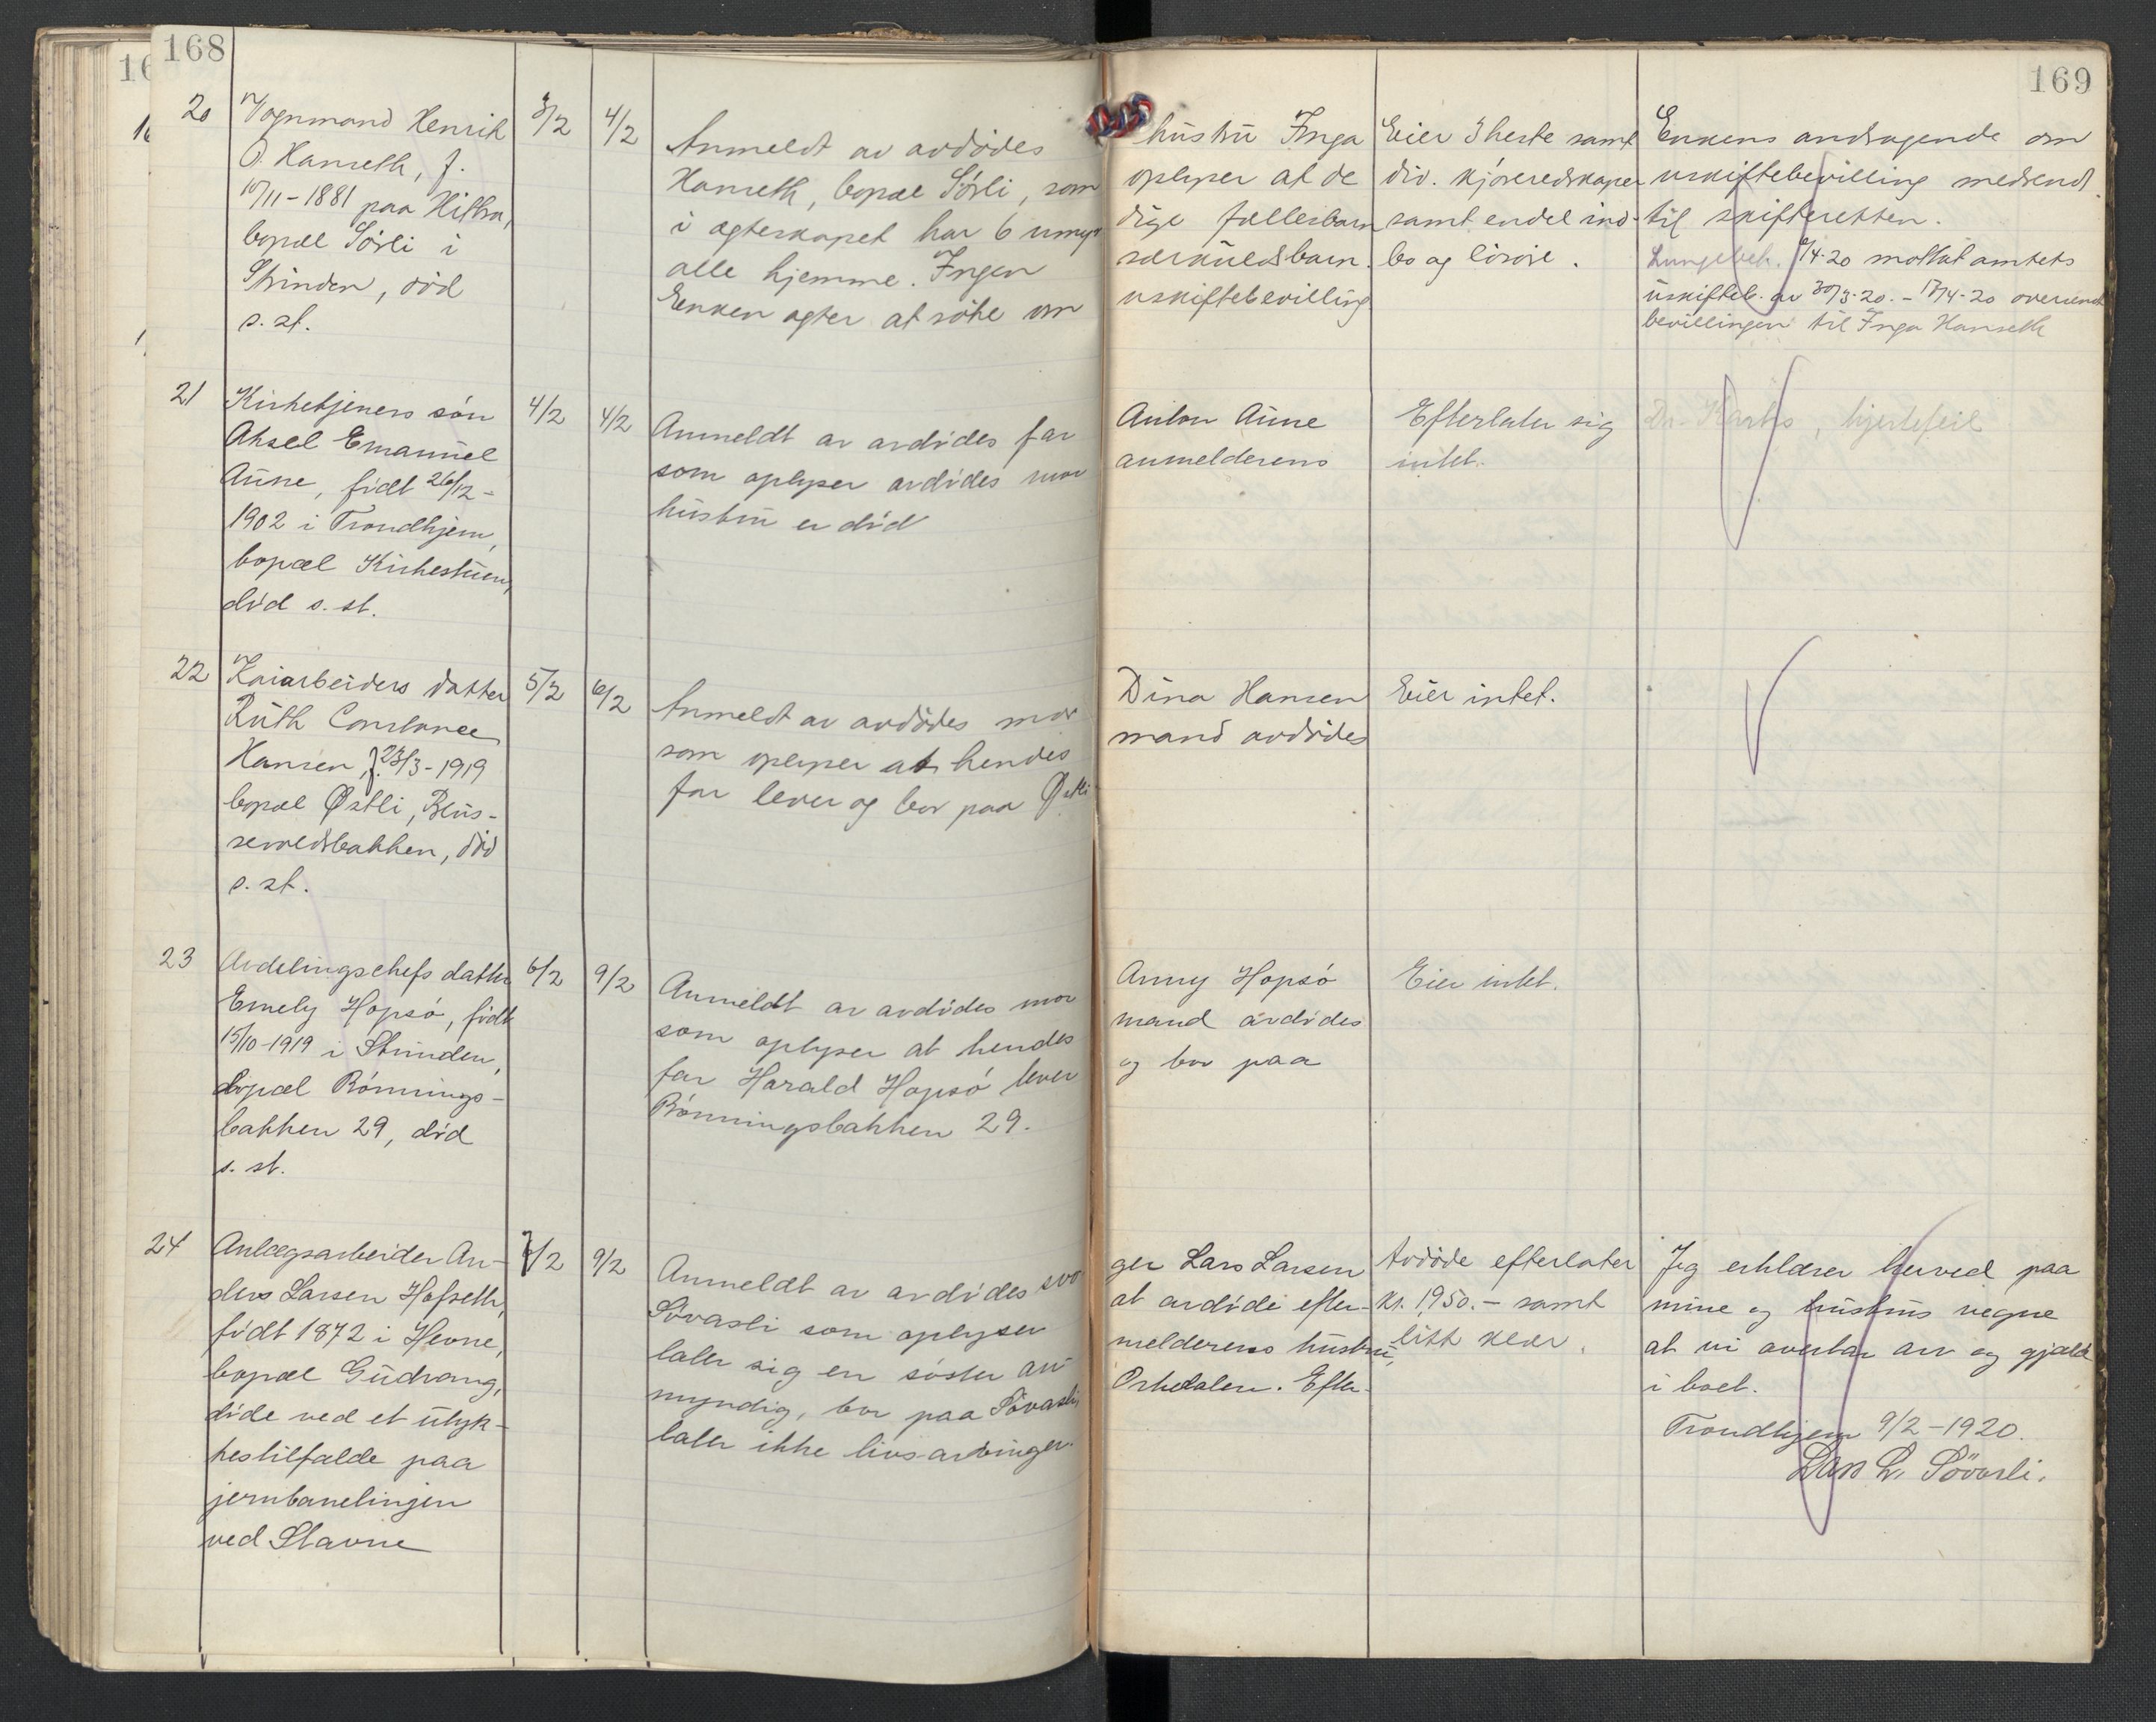 168
169
20
Vognmand Henrik
O. Hanseth, f.
10/11-1881 paa Hitra,
bopæl Sørli i
Strinden, død
s. st.
3/2
4/2
Anmeldt av avdødes hustru Inga
Hanseth, bopæl Sørli, som oplyser at de
i ægteskapet har 6 umyndige fællesbarn
alle hjemme. Ingen særkuldsbarn.
Enken agter at søke om uskiftebevilling
Eier 3 heste samt
div. kjøreredskaper
samt endel ind-
bo og løsøre.
Enkens andragende om
uskiftebevilling medsendt
til skifteretten.
Lungebet. 9/4-20 mottat amtets
uskifteb. av 30/3-20. - 17/4-20 oversendt
bevillingen til Inga Hanseth
21
Kirketjeners søn
Aksel Emanuel
Aune, født 26/12-
1902 i Trondhjem,
bopæl Kirkestuen,
død s. st.
4/2
4/2
Anmeldt av avdødes far Anton Aune
som oplyser avdødes mor anmelderens
hustru er død
Efterlater sig
intet.
Dr. , hjertefeil
22
Kaiarbeiders datter
Ruth Constance
Hansen, f. 23/3-1919
bopæl Østli, Bus-
sevoldsbakken, død
s. st.
5/2
6/2
Anmeldt av avdødes mor Dina Hansen
som oplyser at hendes mand avdødes
far lever og bor paa Østli
Eier intet.
23
Avdelingschefs datter
Emely Hopsø, født
15/10-1919 i Strinden,
bopæl Rønnings-
bakken 29, død
s. st.
6/2
9/2
Anmeldt av avdødes mor Anny Hopsø
som oplyser at hendes mand avdødes
far Harald Hopsø lever og bor paa
Rønningsbakken 29.
Eier intet.
24
Anlægsarbeider An-
ders Larsen Hofseth,
født 1872 i Hevne,
bopæl Gudvang,
døde ved et ulyk-
kestilfælde paa
jernbanelinjen
ved Stavne
7/2
9/2
Anmeldt av avdødes svoger Lars Larsen
Søvasli som oplyser at avdøde efter-
later sig en søster anmelderens hustru,
myndig, bor paa Søvasli, Orkedalen. Efter-
later ikke livsarvinger.
Avdøde efterlater
kr. 1950.- samt
litt klær.
Jeg erklærer herved paa
mine og hustrus vegne
at vi overtar arv og gjæld
i boet.
Trondhjem 9/2-1920.
Lars L. Søvasli.